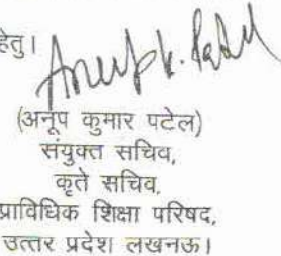 हेतु।
Anup k. Patel
(अनूप कुमार पटेल)
संयुक्त सचिव,
कृते सचिव,
प्राविधिक शिक्षा परिषद,
उत्तर प्रदेश लखनऊ।